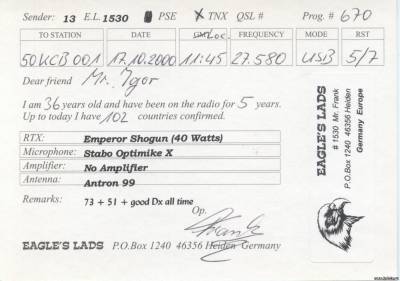 Sender: 13 E.L. 1530 PSE X TNX QSL # Prog. # 670
TO STATION DATE GMT/Loc. FREQUENCY MODE RST
50KCB001 17.10.2000 11:45 27.580 USB 5/7
Dear friend Mr. Igor
I am 36 years old and have been on the radio for 5 years.
Up to today I have 102 countries confirmed.
RTX: Emperor Shogun (40 Watts)
Microphone: Stabo Optimike X
Amplifier: No Amplifier
Antenna: Antron 99
Remarks: 73 + 51 + good Dx all time
Op. Frank
EAGLE'S LADS P.O.Box 1240 46356 Heiden Germany
EAGLE'S LADS
# 1530 Mr. Frank
P.O.Box 1240 46356 Heiden
Germany Europe